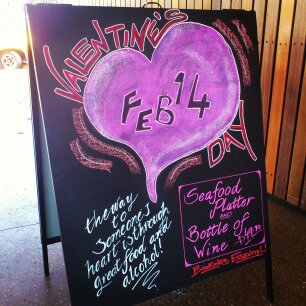 VALENTINE'S
DAY
FEB 14
the way
to
someones
heart is through
great food and
alcohol!
Seafood
Platter
AND
Bottle of
Wine
BOOKINGS ESSENTIAL!